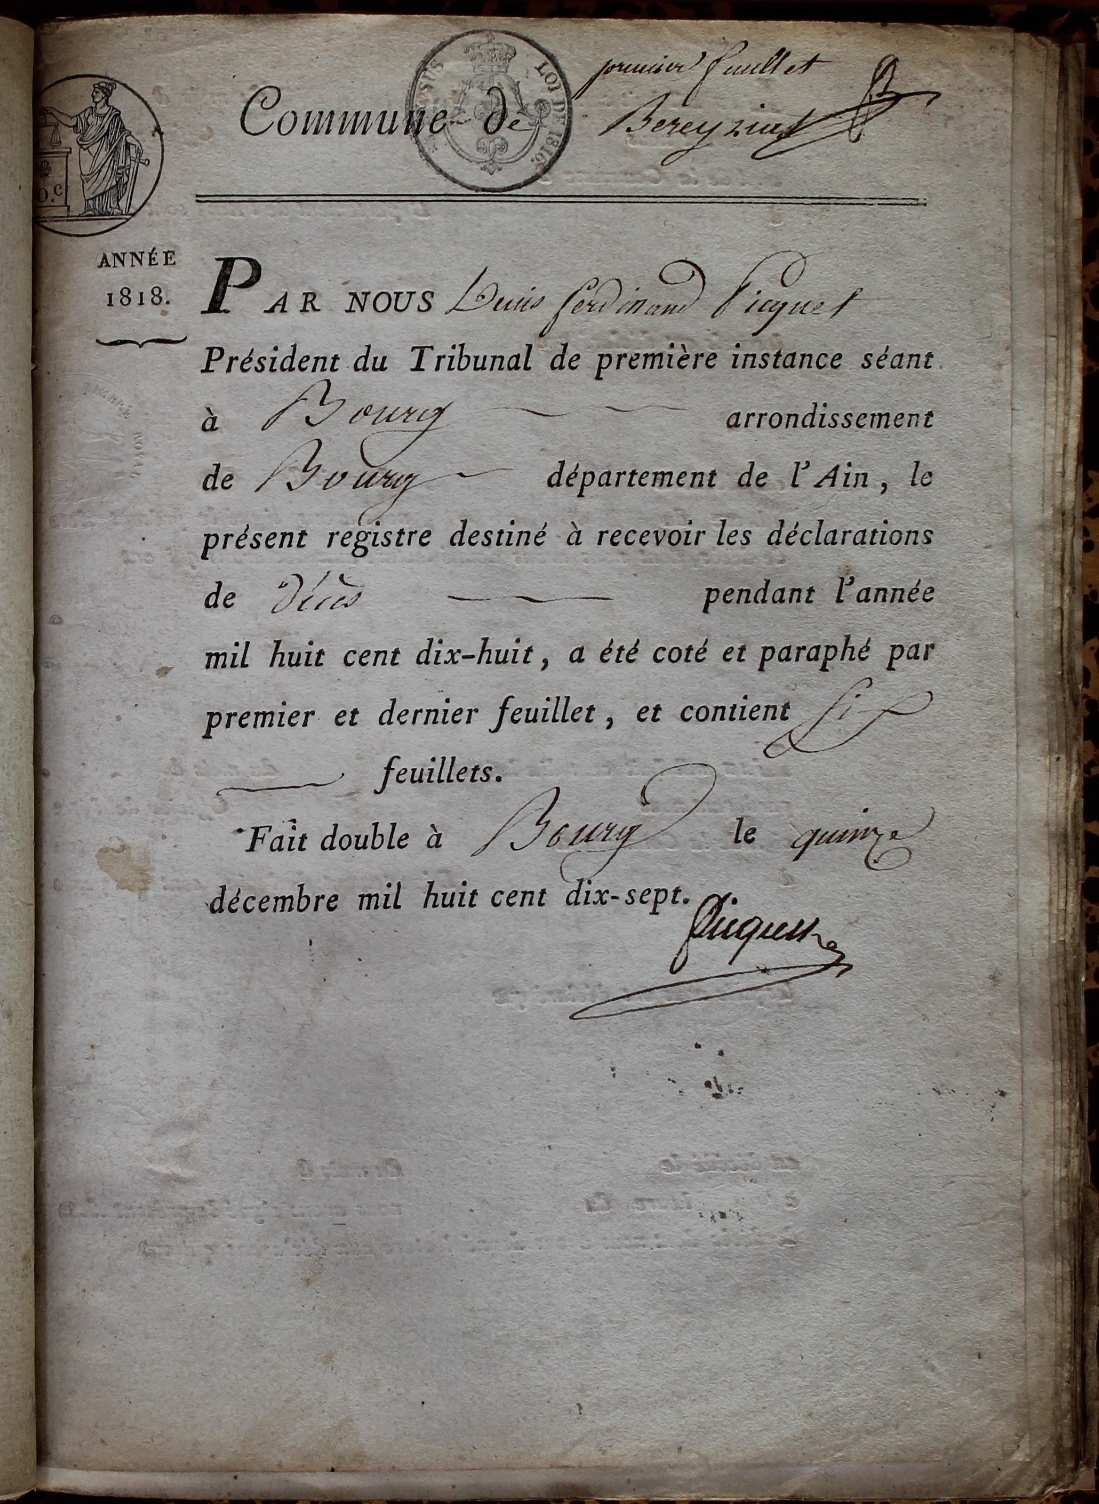 premier feuillet
Commune de Bereyziat
LOI DE 1816.
ANNÉE
1818.
PAR NOUS Louis ferdinand Picquet
Président du Tribunal de première instance séant
à Bourg arrondissement
de Bourg département de l'Ain, le
présent registre destiné à recevoir les déclarations
de décès pendant l'année
mil huit cent dix-huit, a été coté et paraphé par
premier et dernier feuillet, et contient six
feuillets.
Fait double à Bourg le quinze
décembre mil huit cent dix-sept.
Picquet